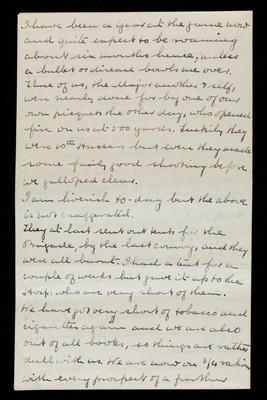 I have been a year at the game now
and quite expect to be roaming
about six months hence, unless
a bullet or disease bowls me over.
Three of us, the Major another & self,
were nearly done for by one of our
own picquets the other day, who opened
fire on us at 500 yards. Luckily they
were 10th Hussars but even they made
some fairly good shooting before
we galloped clear.
I am liverish to-day but the above
is not exaggerated.
They at last sent out tents for the
Brigade, by the last convoy, and they
were all burnt. I had a tent for a
couple of weeks but gave it up to the
Hosp. who are very short of them.
We have got very short of tobacco and
cigarettes again and we are also
out of all books, so things are rather
dull with us. We are now on 3/4 rations
with every prospect of a further